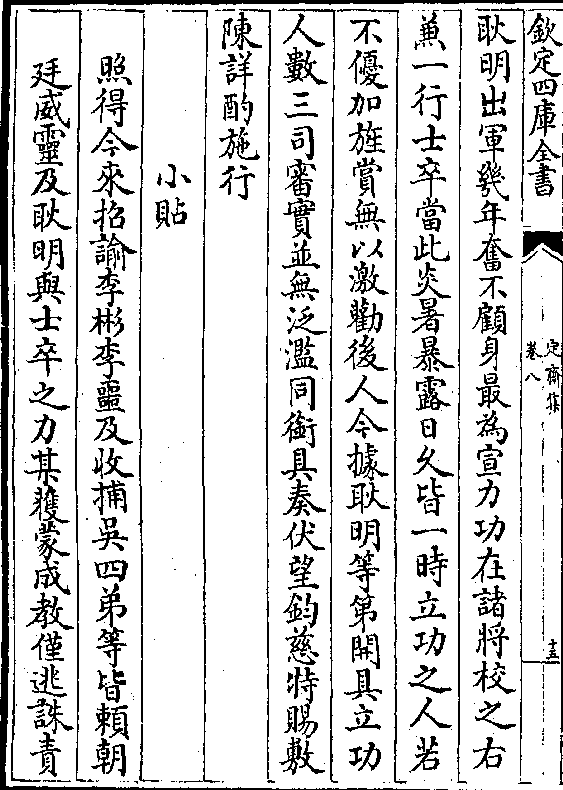 欽定四庫全書
定齋集
卷八
十五
耿明出軍㡬年奮不顧身最為宣力功在諸將校之右
兼一行士卒當此炎暑暴露日久皆一時立功之人若
不優加旌賞無以激勸後人今據耿明等第開具立功
人數三司審實並無泛濫同銜具奏伏望鈞慈特賜敷
陳詳酌施行
小貼
照得今來招諭李彬李噩及收捕吳四弟等皆賴朝
廷威靈及耿明與士卒之力某獲蒙成教僅逃誅責